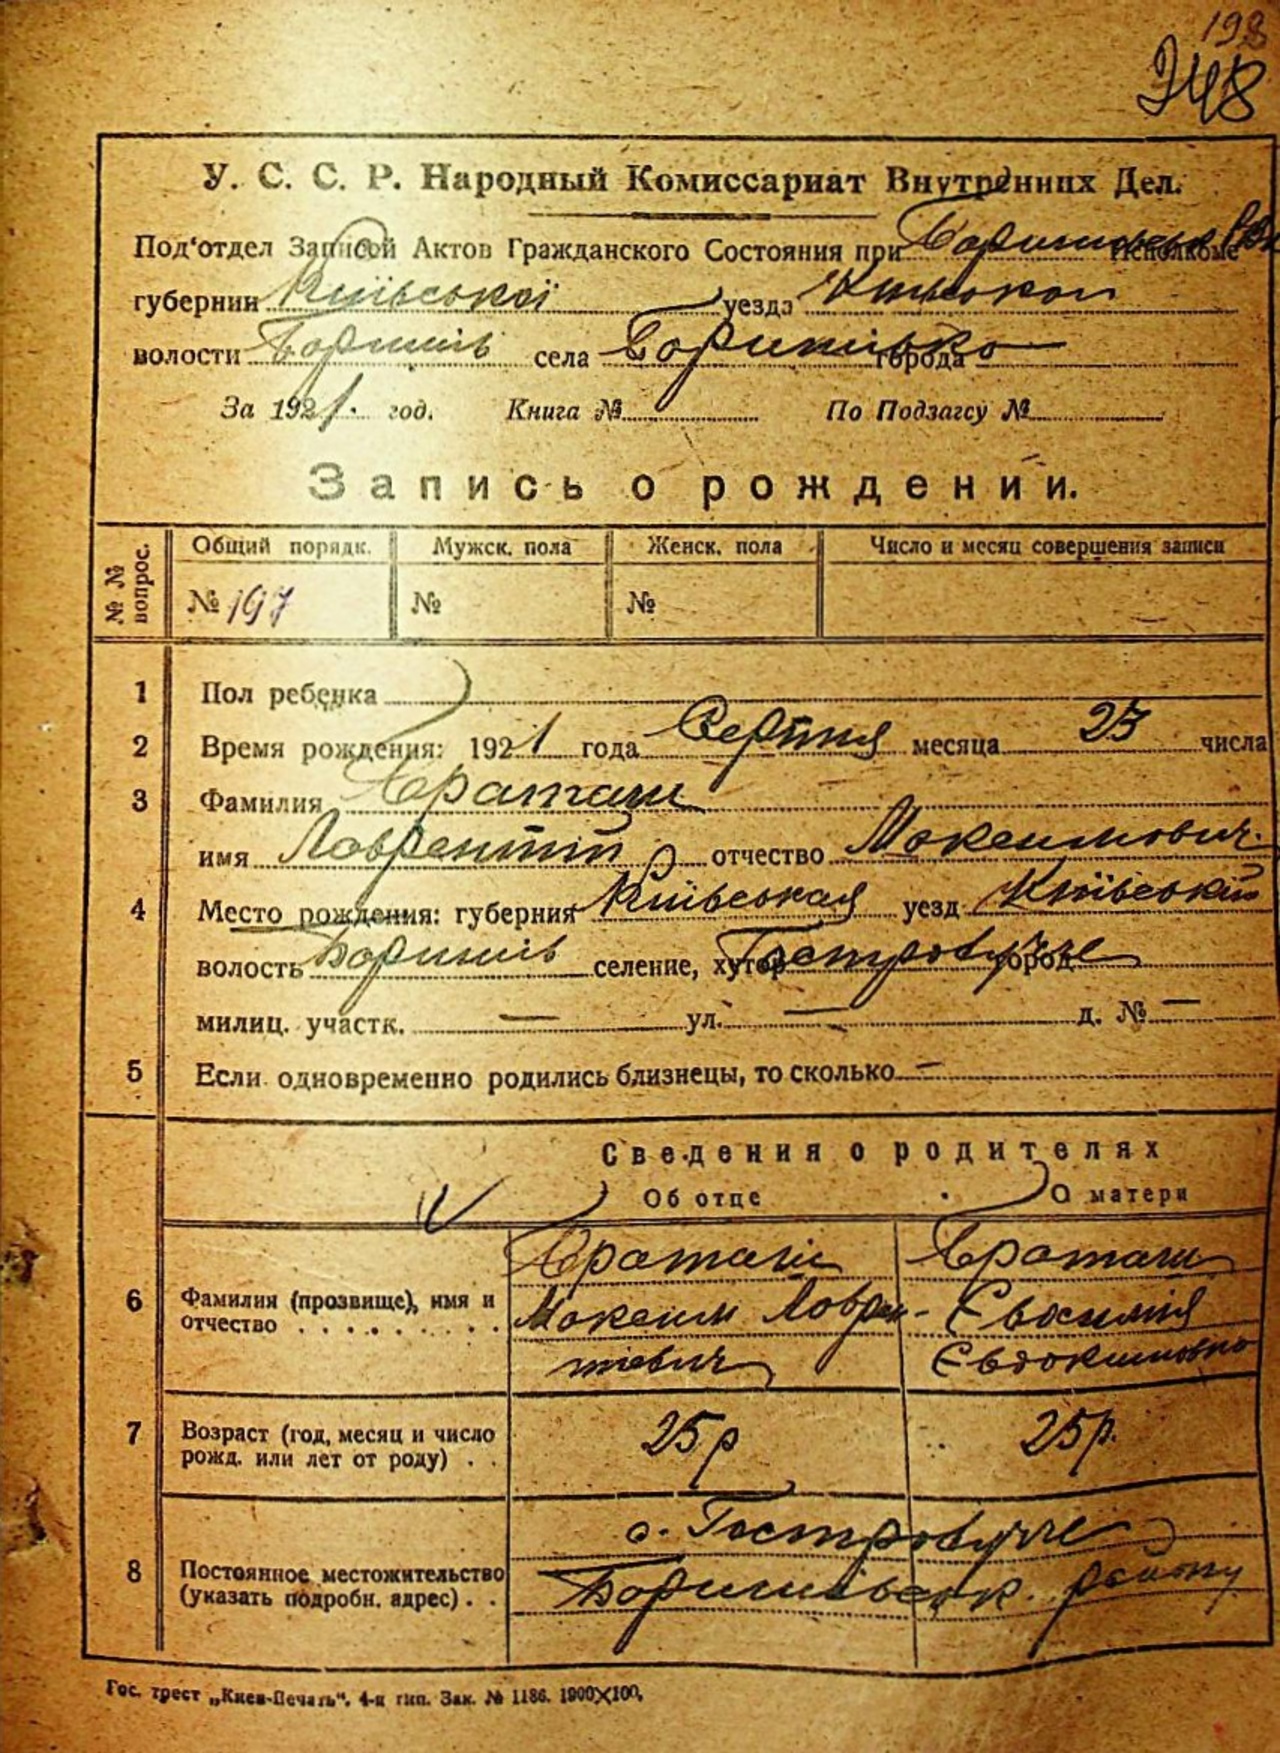 198
248
У. С. С. Р. Народный Комиссариат Внутренних Дел.
Под'отдел Записей Актов Гражданского Состояния при Исполкоме
губернии Київської уезда Київськой
волости Боришпіль села города
За 1921. год. Книга № По Подзагсу №
Запись о рождении.
№№ вопрос. Общий порядк. Мужск. пола Женск. пола Число и месяц совершения записи
№ 197 № №
1 Пол ребенка
2 Время рождения: 1921 года Серпня месяца 23 числа
3 Фамилия
имя Лаврентій отчество Максимович
4 Место рождения: губерния Київськая уезд Київський
волость селение, хутор город
милиц. участк. — ул. — д. № —
5 Если одновременно родились близнецы, то сколько —
Сведения о родителях
Об отце О матери
6 Фамилия (прозвище), имя и отчество
Максим Лаврен- Євдокимовна
тиевич
7 Возраст (год, месяц и число рожд. или лет от роду) 25 р 25 р.
8 Постоянное местожительство (указать подробн. адрес)
с.
району
Гос. трест „Киев-Печать", 4-я тип. Зак. № 1186. 1900×100,